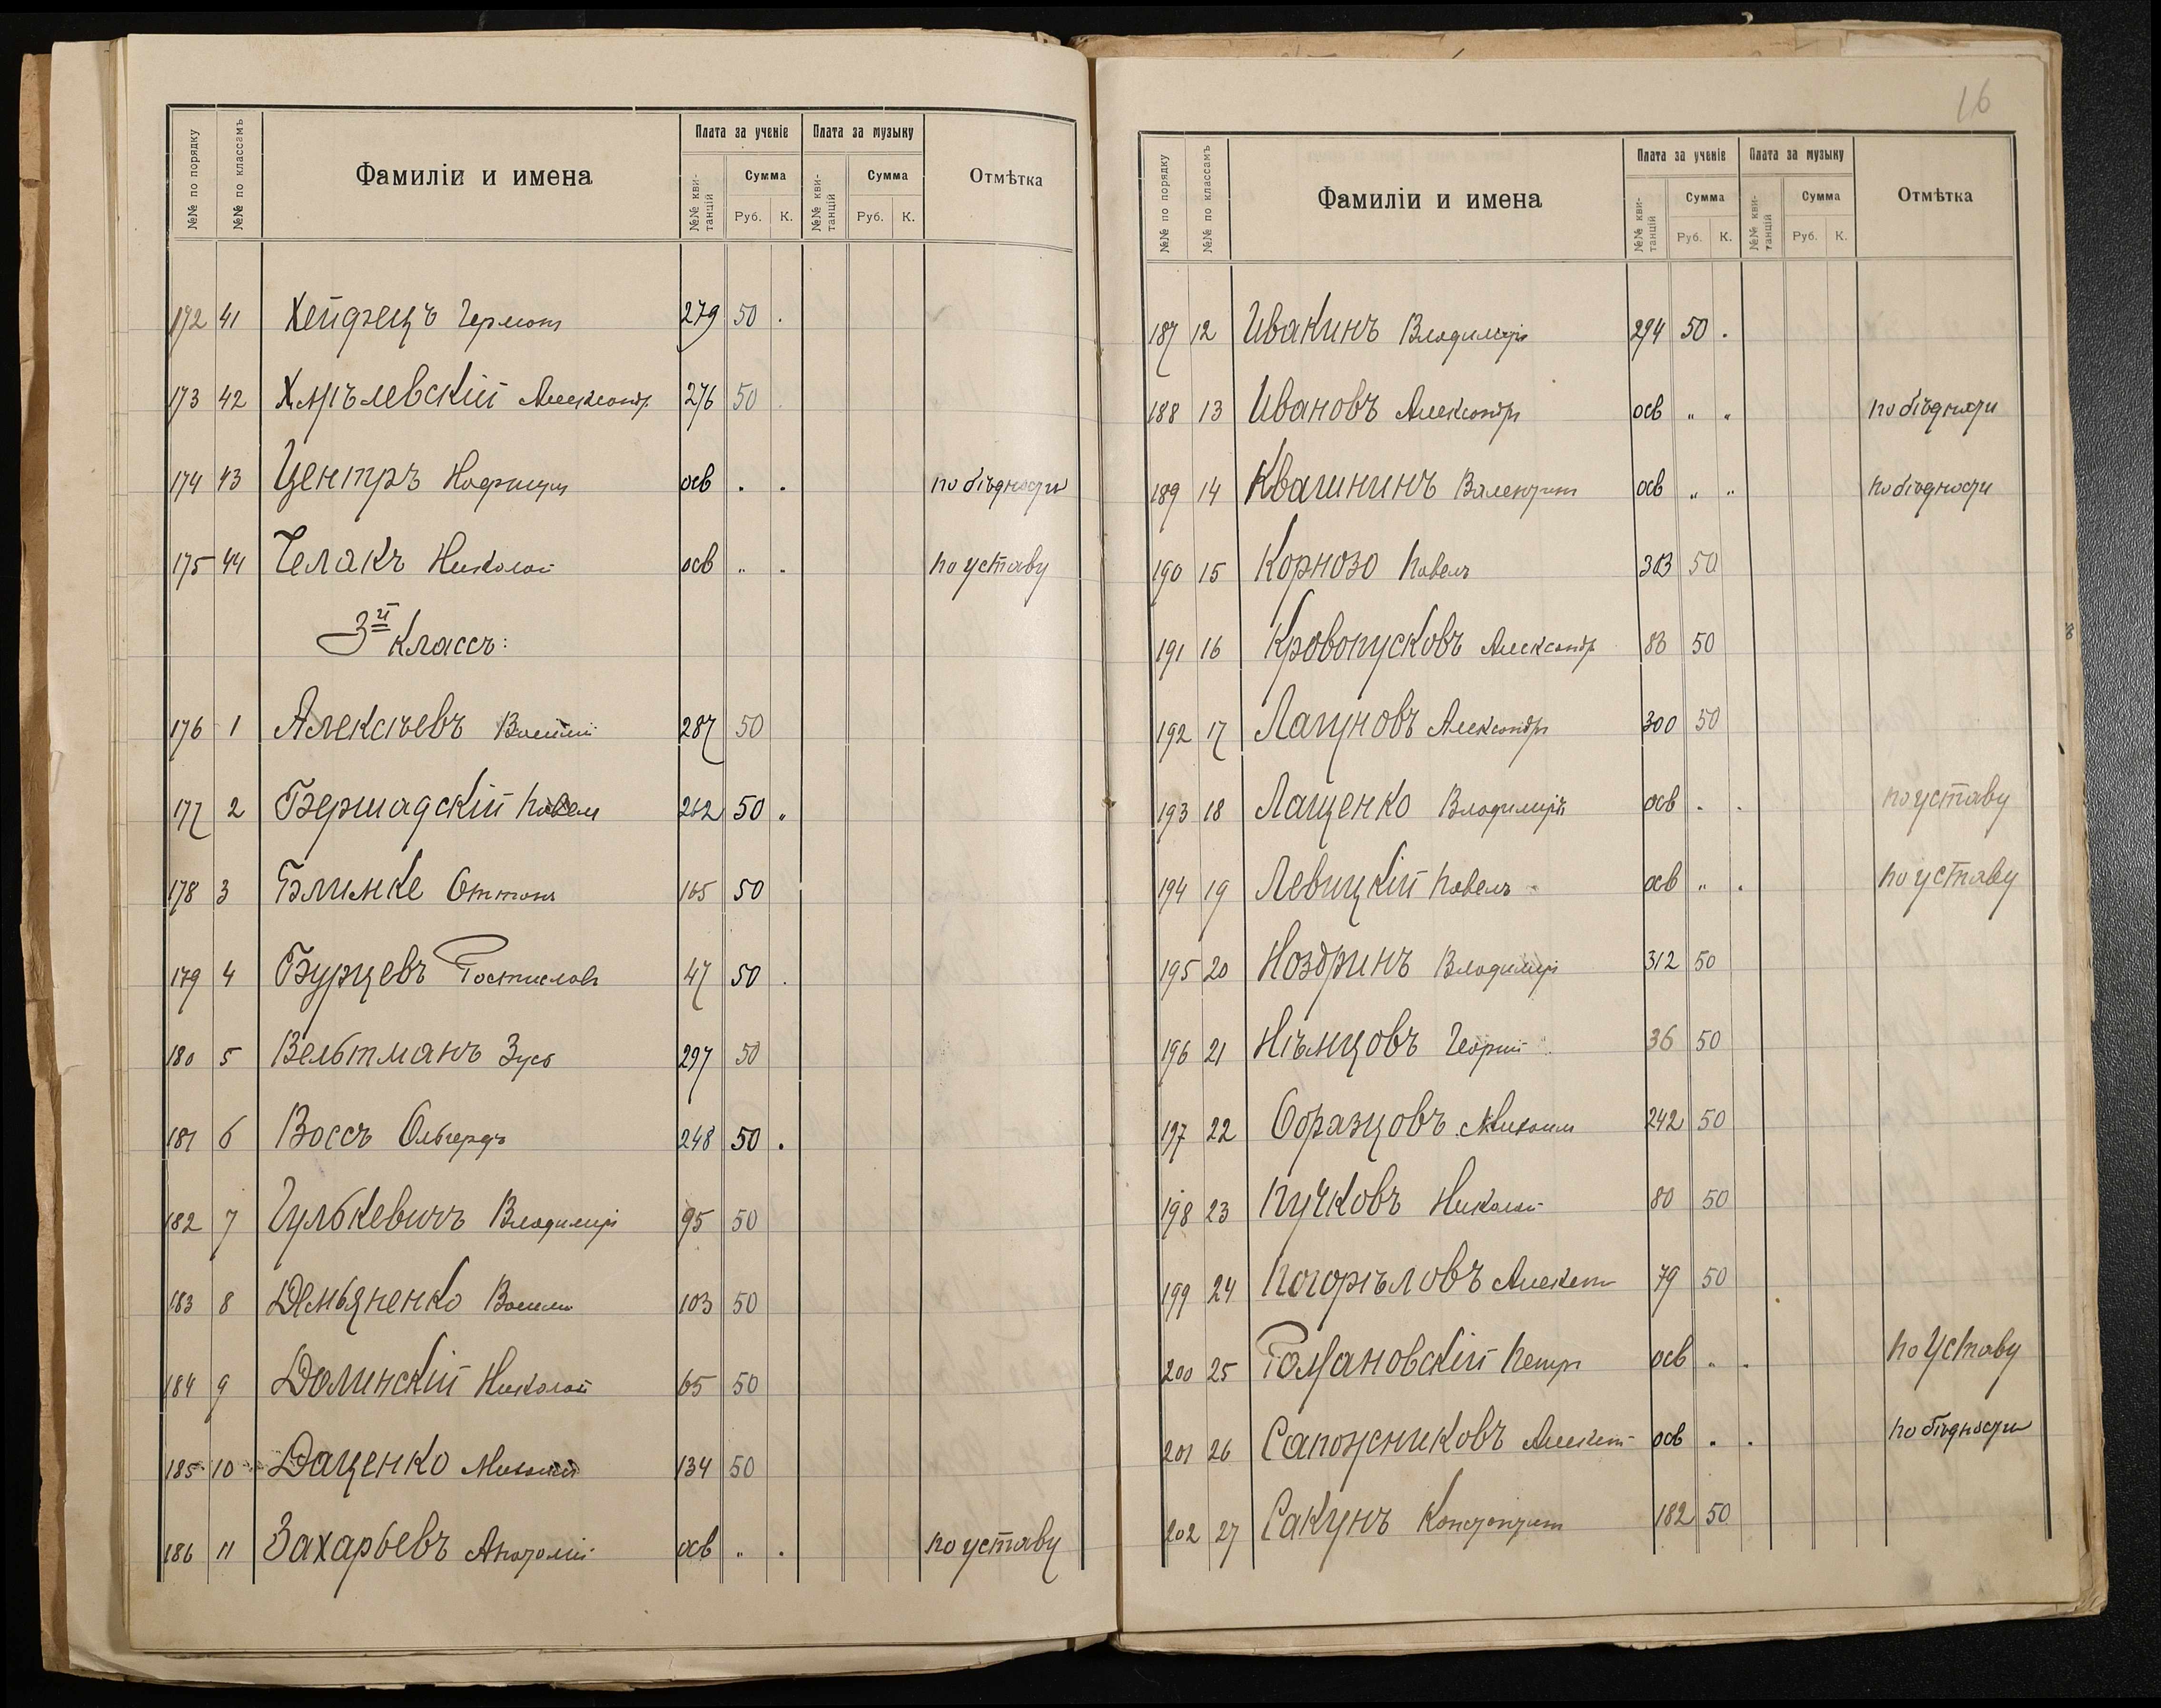 №№ по порядку
№№ по классамъ
Фамиліи и имена
Плата за ученіе
Плата за музыку
Отмѣтка
№№ кви-
танцій
Сумма
Руб. К.
№№ кви-
танцій
Сумма
Руб. К.
172 41 Хейфецъ Герман 279 50 .
173 42 Хмѣлевскій Александр 276 50
174 43 Центръ осв . . по бѣдности
175 44 Челакъ Николай осв " . по уставу
3й классъ:
176 1 Алексѣевъ 287 50
177 2 Бершадскій Павел 262 50 "
178 3 Блимке Оттонъ 165 50
179 4 Бурцевъ Ростиславъ 47 50 .
180 5 Вельтманъ Зусь 297 50
181 6 Воссъ Ольгердъ 248 50 .
182 7 Гулькевичъ Владиміръ 95 50
183 8 Демьяненко 103 50
184 9 Долинскій Николай 65 50
185 10 Даценко Михаил 134 50
186 11 Захарьевъ Анатолій осв " . по уставу
16
№№ по порядку
№№ по классамъ
Фамиліи и имена
Плата за ученіе
Плата за музыку
Отмѣтка
№№ кви-
танцій
Сумма
Руб. К.
№№ кви-
танцій
Сумма
Руб. К.
187 12 Ивакинъ Владиміръ 294 50 .
188 13 Ивановъ Александръ осв " " по бѣдности
189 14 Квашнинъ Валентин осв " " по бѣдности
190 15 Корнозо Павелъ 303 50
191 16 Кровопусковъ Александр 83 50
192 17 Лагуновъ Александръ 300 50
193 18 Лащенко Владиміръ осв . . по уставу
194 19 Левицкій Павелъ осв " . по уставу
195 20 Ноздринъ Владиміръ 312 50
196 21 Нѣмцовъ Георгій 36 50
197 22 Образцовъ Михаил 242 50
198 23 Пучковъ Николай 80 50
199 24 Погорѣловъ 79 50
200 25 Романовскій Петръ осв " . по Уставу
201 26 Сапожниковъ осв . . по бѣдности
202 27 Сакунъ Константин 182 50